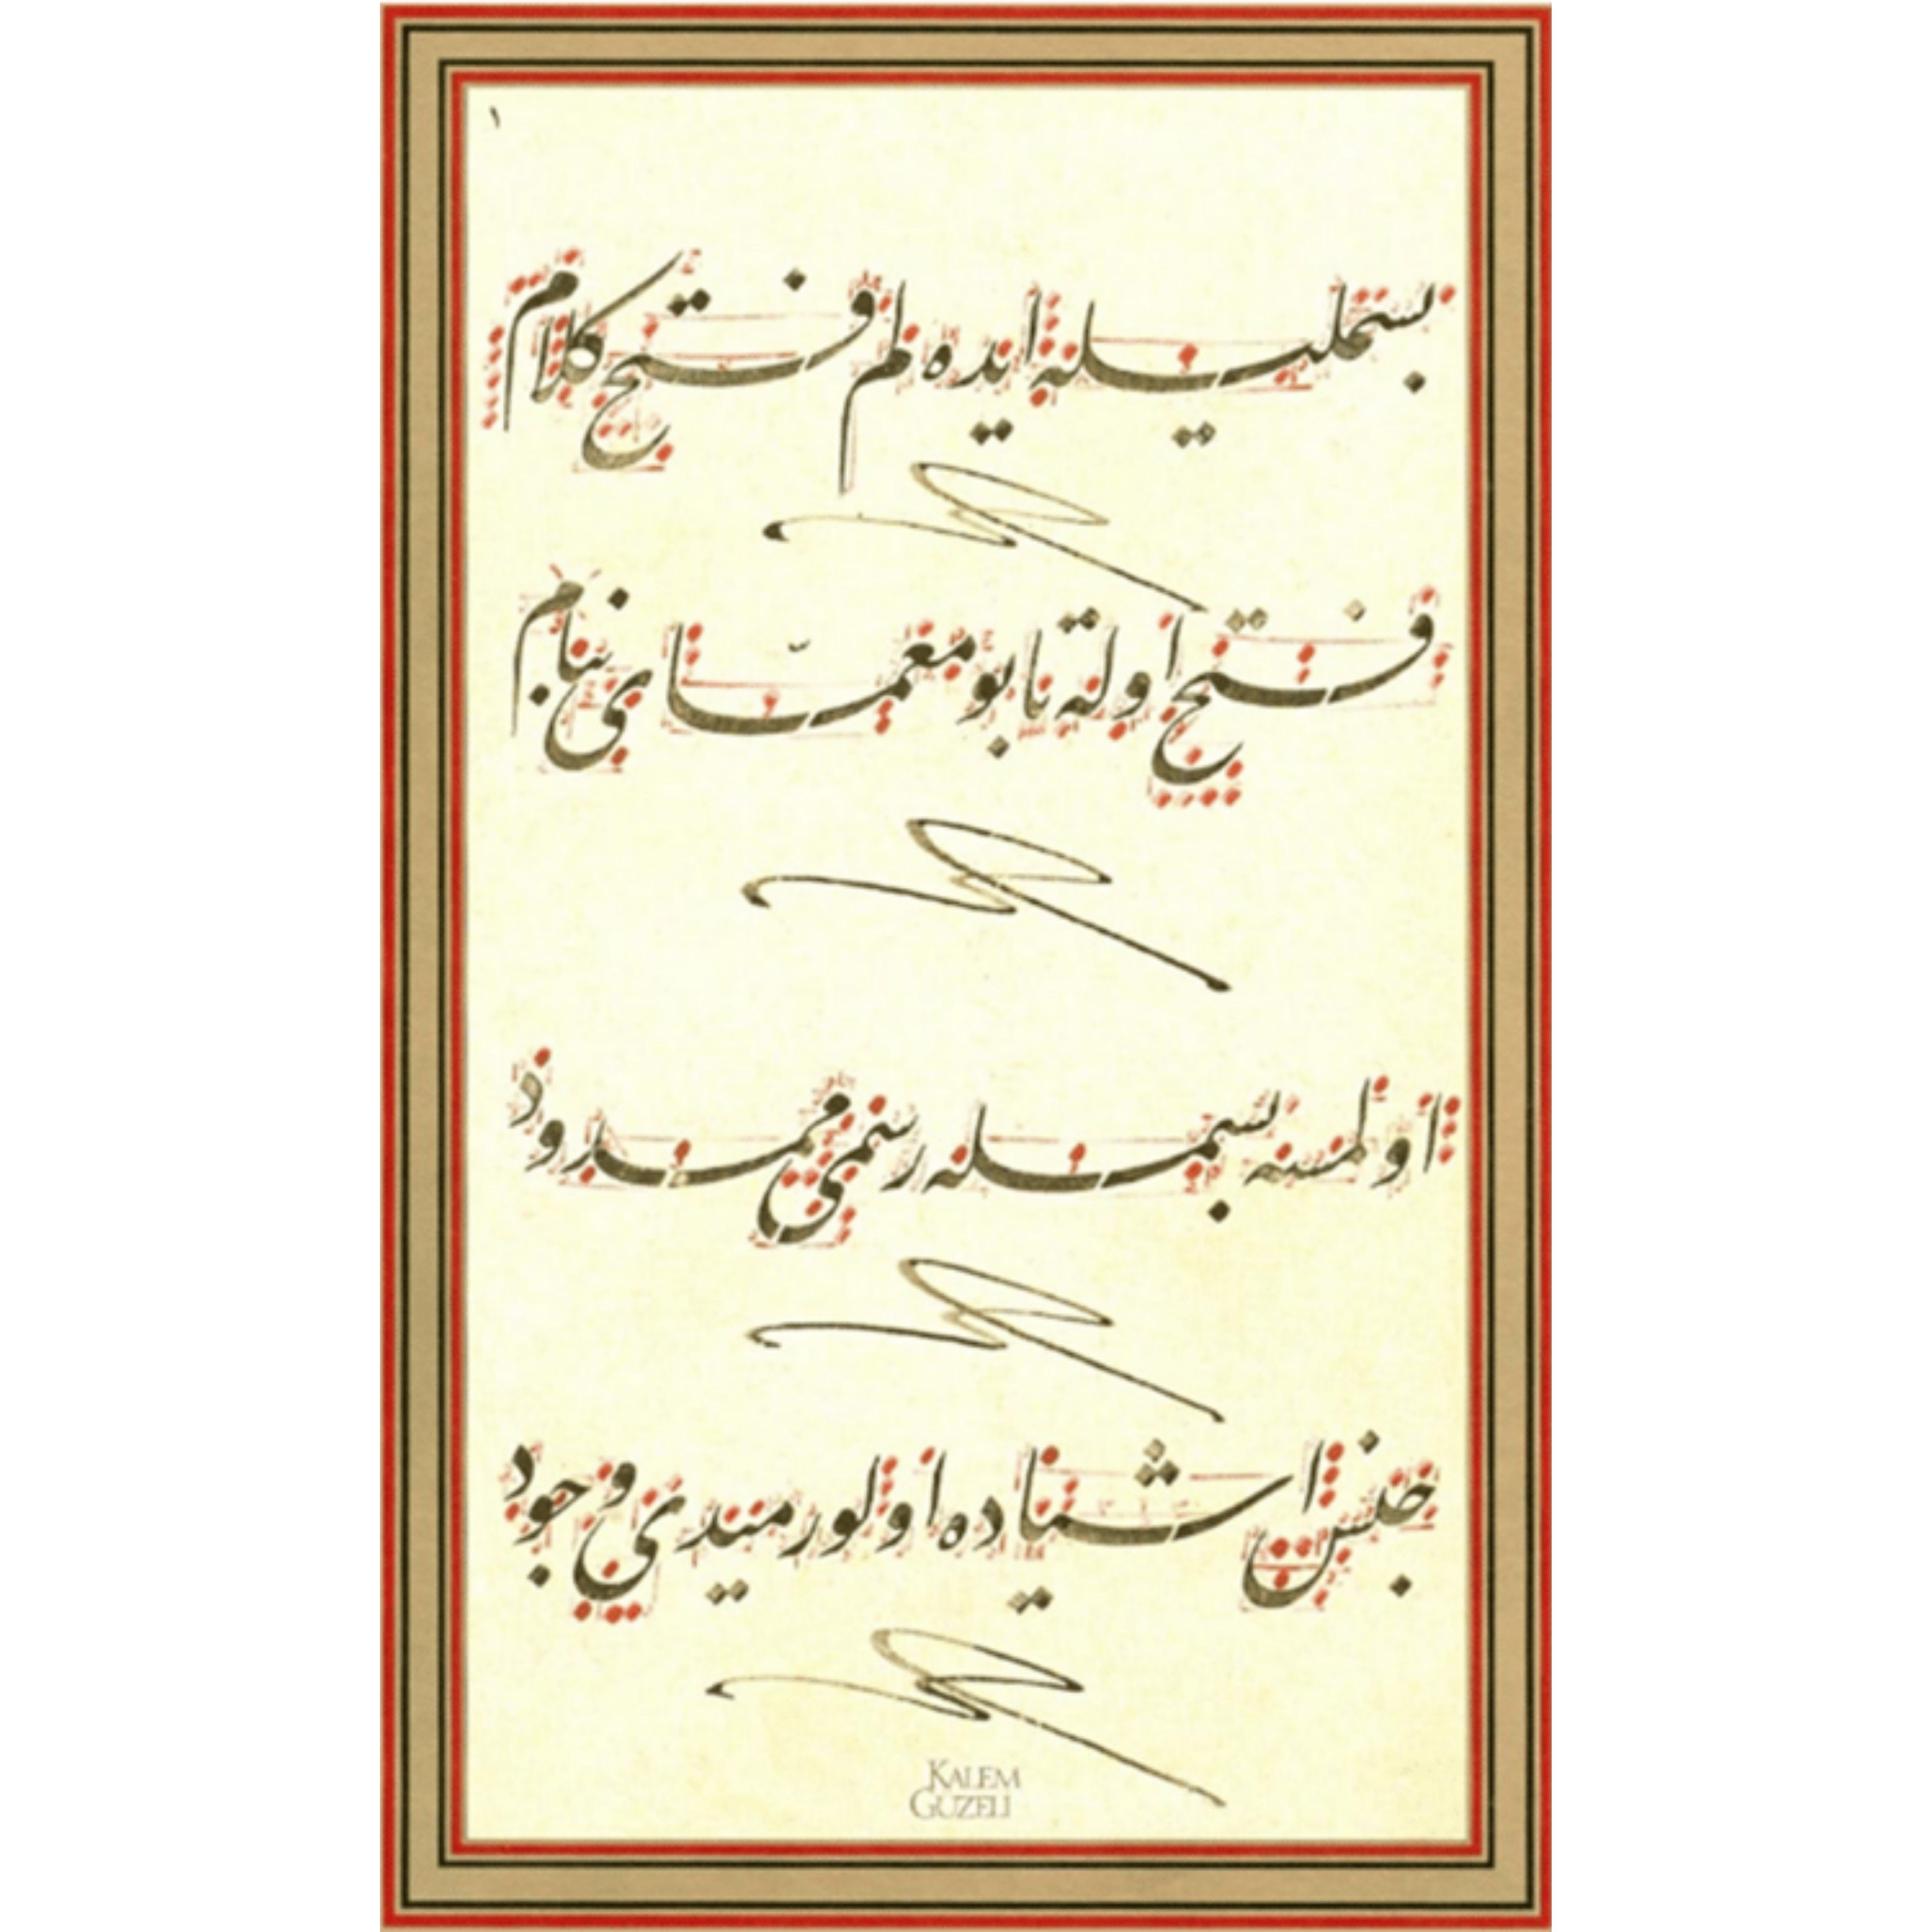 ١
بسمليله ايده لم فتح كلام
فتح اولته تا بو معمّاى بنام
اولمسه بسمله رسمى ممدود
جنس اشياده اولورميدى وجود
KALEM
GUZELI